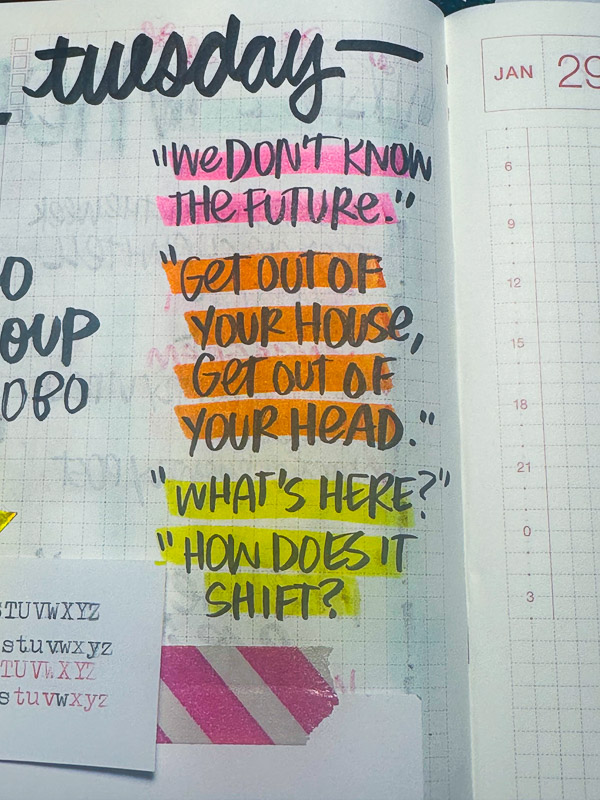 tuesday—
"WeDON'T KNOW
THE FUTURE."
"GeT OUT OF
YOUR HOUSe,
GeT OUT OF
YOUR HeAD."
"WHAT'S HERE?"
"HOW DOES IT
SHIFT?
O
OUP
OBO
STUVWXYZ
stuvwxyz
TUVWXYZ
stuvwxyz
JAN
29
6
9
12
15
18
21
0
3